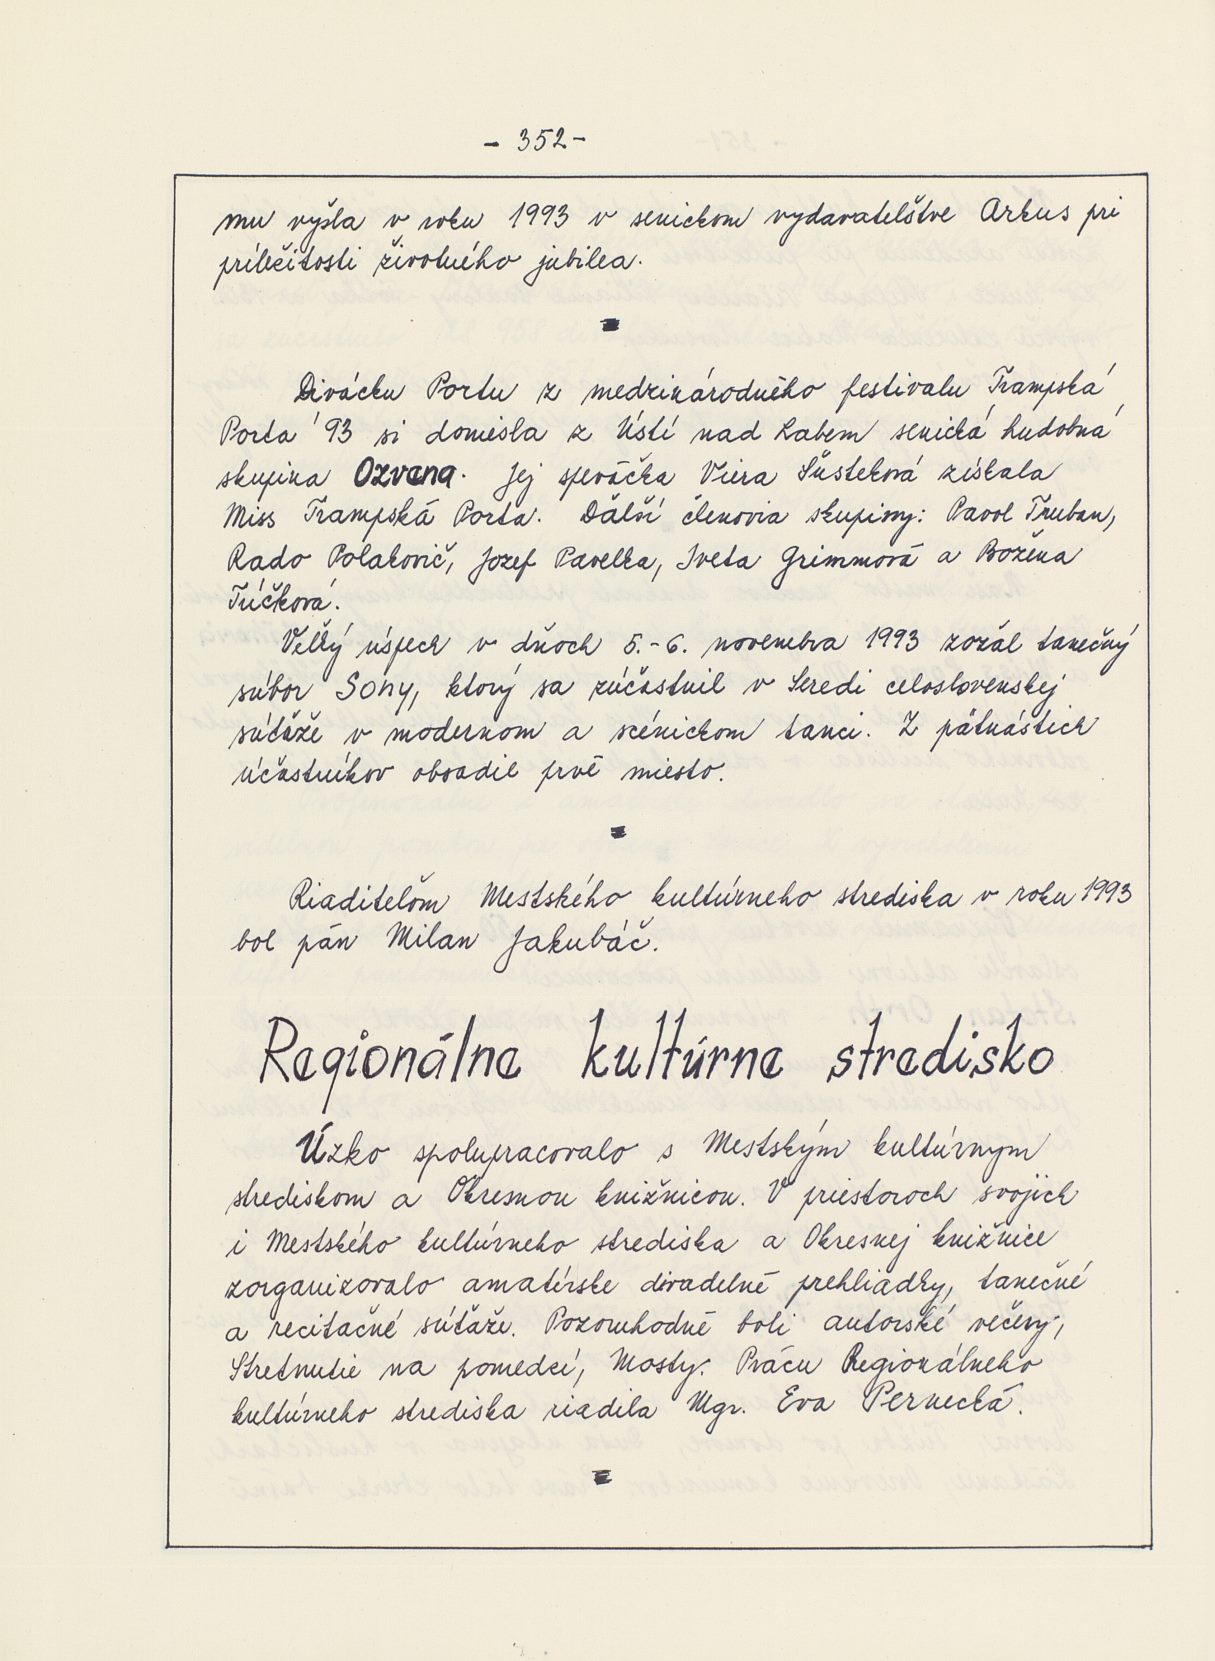 - 352 -
mu vyšla v roku 1993 v senickom vydavatelštve Arkus pri
príležitosti životného jubilea.
Divácku Portu z medzinárodného festivalu Trampská
Porta '93 si doniesla z Ústí nad Labem senická hudobná
skupina Ozvena. Jej speváčka Viera Šusteková získala
Miss Trampská Porta. Ďalší členovia skupiny: Pavol Truban,
Rado Polakovič, Jozef Pavelka, Iveta Grimmová a Božena
Túčková.
Veľký úspech v dňoch 5.-6. novembra 1993 zožal tanečný
súbor Sony, ktorý sa zúčastnil v Seredi celoslovenskej
súťaže v modernom a scénickom tanci. Z pätnástich
účastníkov obsadil prvé miesto.
Riaditeľom Mestského kultúrneho strediska v roku 1993
bol pán Milan Jakubáč.
Regionálne kultúrne stredisko
Úzko spolupracovalo s Mestským kultúrnym
strediskom a Okresnou knižnicou. V priestoroch svojich
i Mestského kultúrneho strediska a Okresnej knižnice
zorganizovalo amatérske divadelné prehliadky, tanečné
a recitačné súťaže. Pozoruhodné boli autorské večery,
Stretnutie na pomedzí, Mosty. Prácu Regionálneho
kultúrneho strediska riadila Mgr. Eva Pernecká.